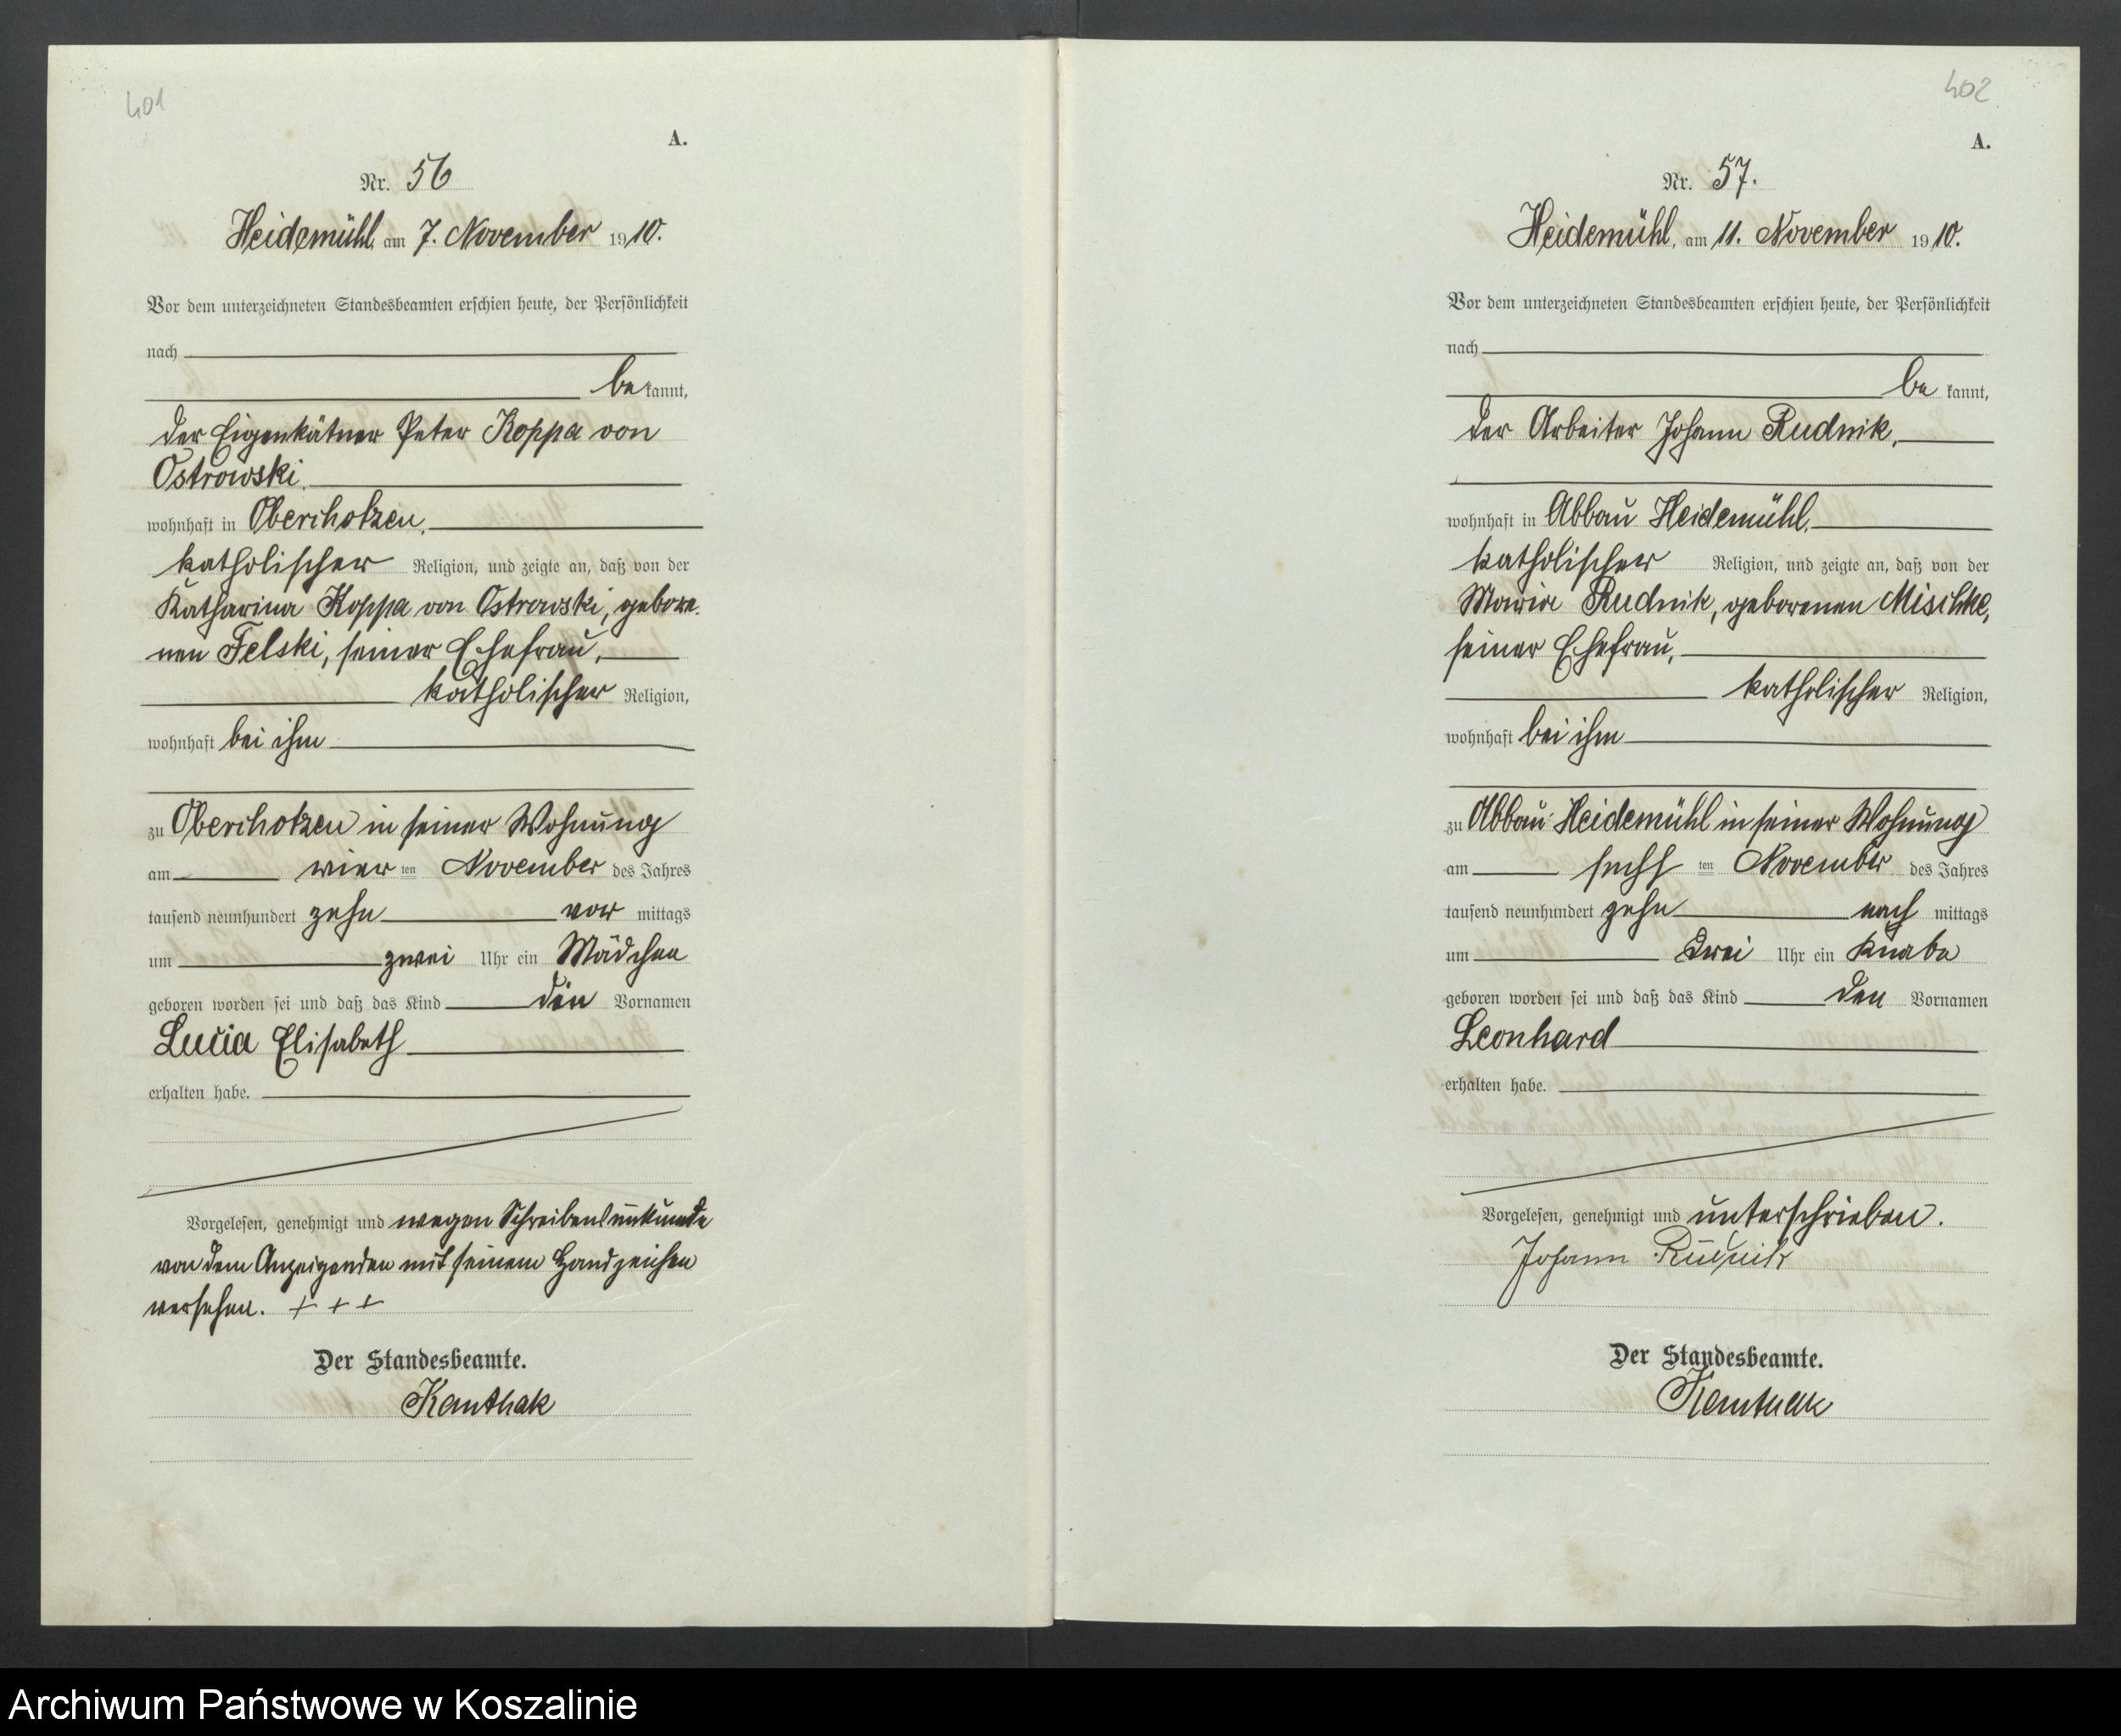 401
A.
Nr. 56
Heidemühl, am 7. November 1910.
Vor dem unterzeichneten Standesbeamten erschien heute, der Persönlichkeit
nach
be kannt,
der Eigenkätner Peter Koppa von
Ostrowski,
wohnhaft in Oberchotzen,
katholischer Religion, und zeigte an, daß von der
Katharina Koppa von Ostrowski, gebore-
nen Felski, seiner Ehefrau,
katholischer Religion,
wohnhaft bei ihm
zu Oberchotzen in seiner Wohnung
am vier ten November des Jahres
tausend neunhundert zehn vor mittags
um zwei Uhr ein Mädchen
geboren worden sei und daß das Kind den Vornamen
Lucia Elisabeth
erhalten habe.
Vorgelesen, genehmigt und wegen Schreibensunkunde
von dem Anzeigenden mit seinem Handzeichen
versehen. + + +
Der Standesbeamte.
Kanthak
402
A.
Nr. 57.
Heidemühl, am 11. November 1910.
Vor dem unterzeichneten Standesbeamten erschien heute, der Persönlichkeit
nach
be kannt,
der Arbeiter Johann Rudnik,
wohnhaft in Abbau Heidemühl,
katholischer Religion, und zeigte an, daß von der
Maria Rudnik, geborenen Mischke,
seiner Ehefrau,
katholischer Religion,
wohnhaft bei ihm
zu Abbau Heidemühl in seiner Wohnung
am sechs ten November des Jahres
tausend neunhundert zehn nach mittags
um drei Uhr ein Knabe
geboren worden sei und daß das Kind den Vornamen
Leonhard
erhalten habe.
Vorgelesen, genehmigt und unterschrieben.
Johann Rudnik
Der Standesbeamte.
Kanthak
Archiwum Państwowe w Koszalinie